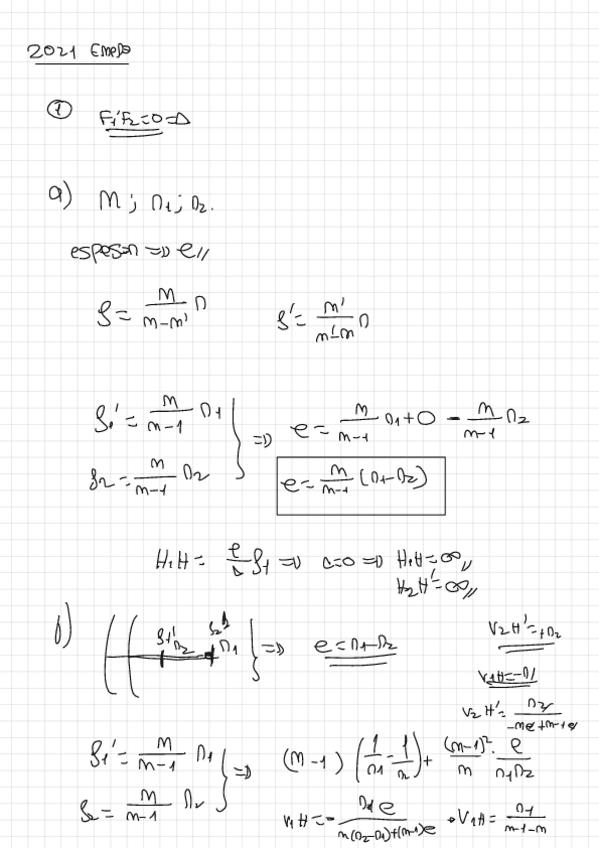 2021 Enero
①
F₁'F₂=0=Δ
a) m ; n₁ ; n₂.
espesor ⇒ e //
f = m/(m-m') n f' = m'/(m'-m) n
f₁' = m/(m-1) n₁ } ⇒ e = m/(m-1) n₁ + 0 - m/(m-1) n₂
f₂ = m/(m-1) n₂ e = m/(m-1) (n₁-n₂)
H₁H = e/Δ f₁ ⇒ Δ=0 ⇒ H₁H = ∞ //
H₂H' = ∞ //
b) f₁' n₂ f₂ n₁ } ⇒ e = n₁-n₂ V₂H' = +n₂
V₁H = -n₁
V₂H' =
f₁' = m/(m-1) n₁ } ⇒ (m-1) (1/n₁ - 1/n) + (m-1)²/m · e/(n₁n₂)
f₂ = m/(m-1) n₂ V₁H = - n₁e/(m(n₂-n₁)+(m-1)e) • V₁H = n₁/(m-1-m)